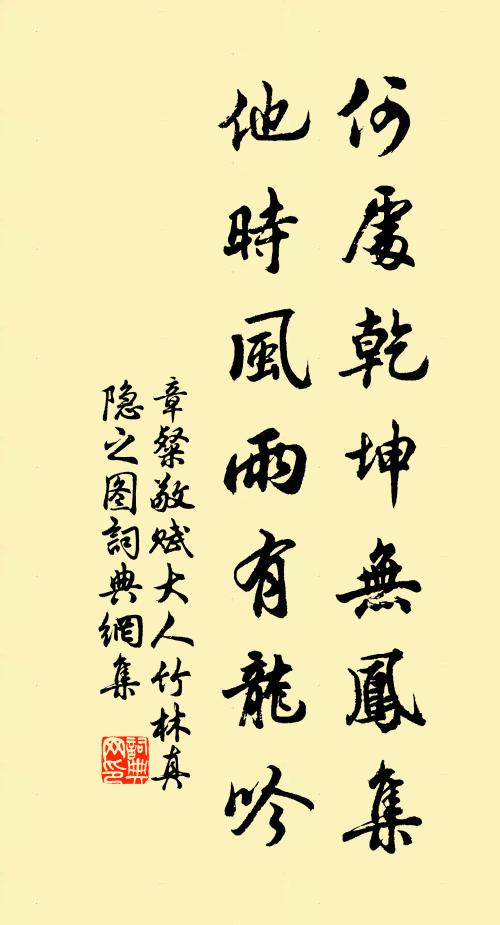 何處乾坤無鳳集
他時風雨有龍吟
章粲敬赋大人竹林真
隐之图詞典網集
詞典
网印